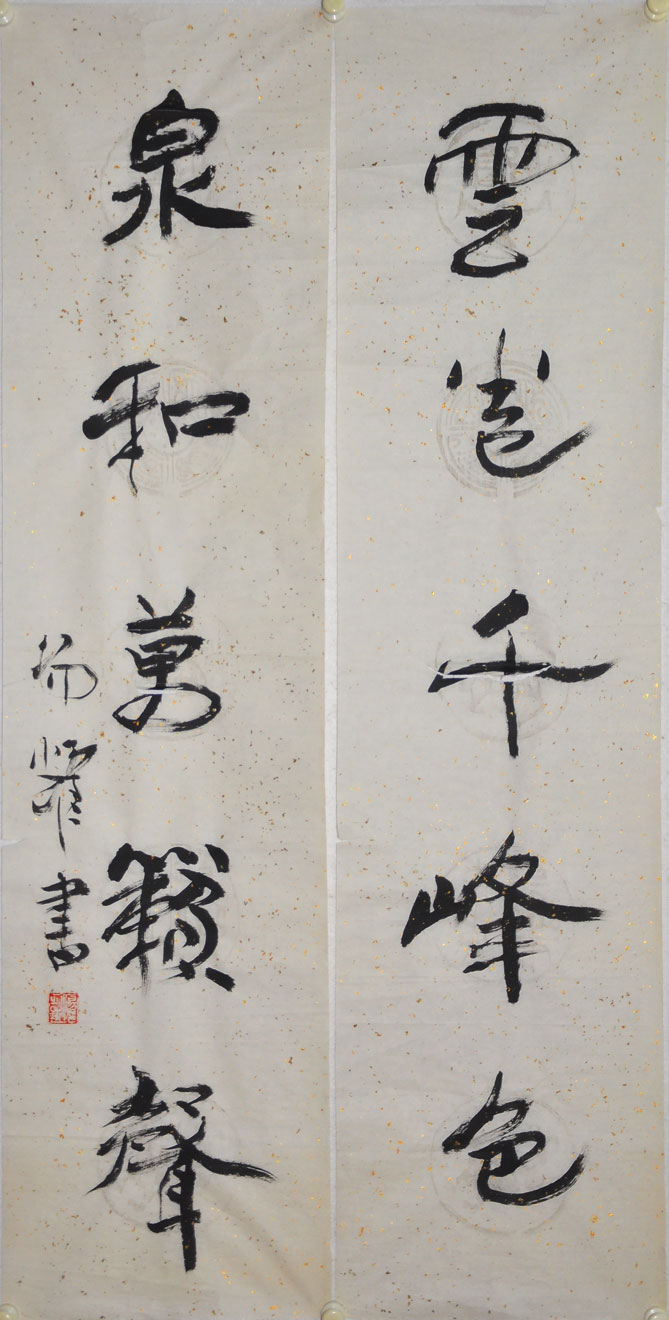 雲卷千峰色
泉和萬籟聲
耀書